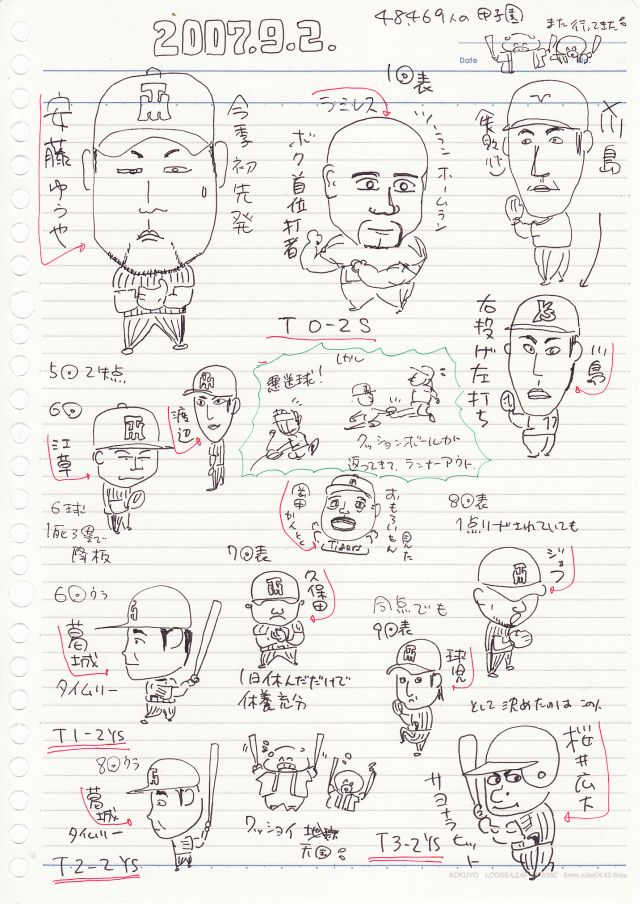 2007.9.2.
48,469人の甲子園
また行ってきた。
Date
1回表
安藤ゆうや
今季初先発
ラミレス
ボク首位打者
ランホームラン
川島
T0-2S
右投げ左打ち
川島
5回 2失点
6回
渡辺
江草
しかし
悪送球!
クッションボールが
返ってきて、ランナーアウト。
6球
1死3塁で
降板
岡田かんとく
おもろいもん見た
Tigers
8回表
1点リードされていても
ジェフ
7回表
久保田
1日休んだだけで
休養充分
6回ウラ
葛城
タイムリー
T1-2YS
同点でも
9回表
球児
として決めたのはこの人
桜井広大
サヨナラヒット
T3-2YS
8回ウラ
葛城
タイムリー
T2-2YS
ワッショイ
天国。
KOKUYO LOOSE-LEAF
5mm ruled×43 lines